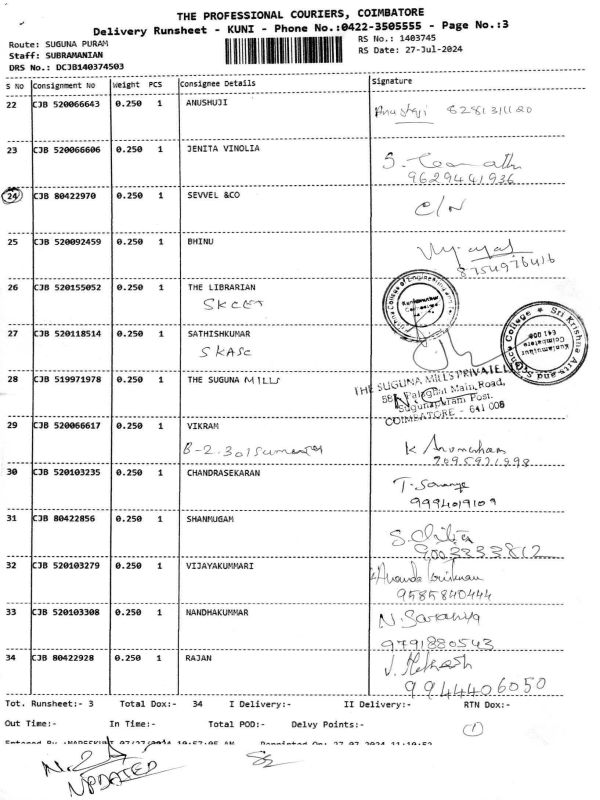 THE PROFESSIONAL COURIERS, COIMBATORE
Delivery Runsheet - KUNI - Phone No.:0422-3505555 - Page No.:3
Route: SUGUNA PURAM RS No.: 1403745
Staff: SUBRAMANIAN RS Date: 27-Jul-2024
DRS No.: DCJB140374503
S No Consignment No Weight PCS Consignee Details Signature
22 CJB 520066643 0.250 1 ANUSHUJI 8281311120
23 CJB 520066606 0.250 1 JENITA VINOLIA
9629441936
24 CJB 80422970 0.250 1 SEVVEL &CO C/N
25 CJB 520092459 0.250 1 BHINU
8754976416
26 CJB 520155052 0.250 1 THE LIBRARIAN
SKCET
27 CJB 520118514 0.250 1 SATHISHKUMAR
SKASC
Sri Krishna Arts and Science College
Kuniamuthur
Coimbatore
641 008
28 CJB 519971978 0.250 1 THE SUGUNA MILLS
THE SUGUNA MILLS PRIVATE
Palaghat Main Road,
Sugunapuram Post.
COIMBATORE - 641 008
29 CJB 520066617 0.250 1 VIKRAM
B-2. 301 K Arumugham
7695921998
30 CJB 520103235 0.250 1 CHANDRASEKARAN
T. Saranya
9994019109
31 CJB 80422856 0.250 1 SHANMUGAM
S. Chitra
9003333812
32 CJB 520103279 0.250 1 VIJAYAKUMMARI
Ananda krishnan
9585840444
33 CJB 520103308 0.250 1 NANDHAKUMMAR N. Saranya
9791880543
34 CJB 80422928 0.250 1 RAJAN
9944406050
Tot. Runsheet:- 3 Total Dox:- 34 I Delivery:- II Delivery:- RTN Dox:-
Out Time:- In Time:- Total POD:- Delvy Points:- 1
07/27/2024 10:57:05 AM Reprinted On: 27-07-2024 11:10:52
UPDATED